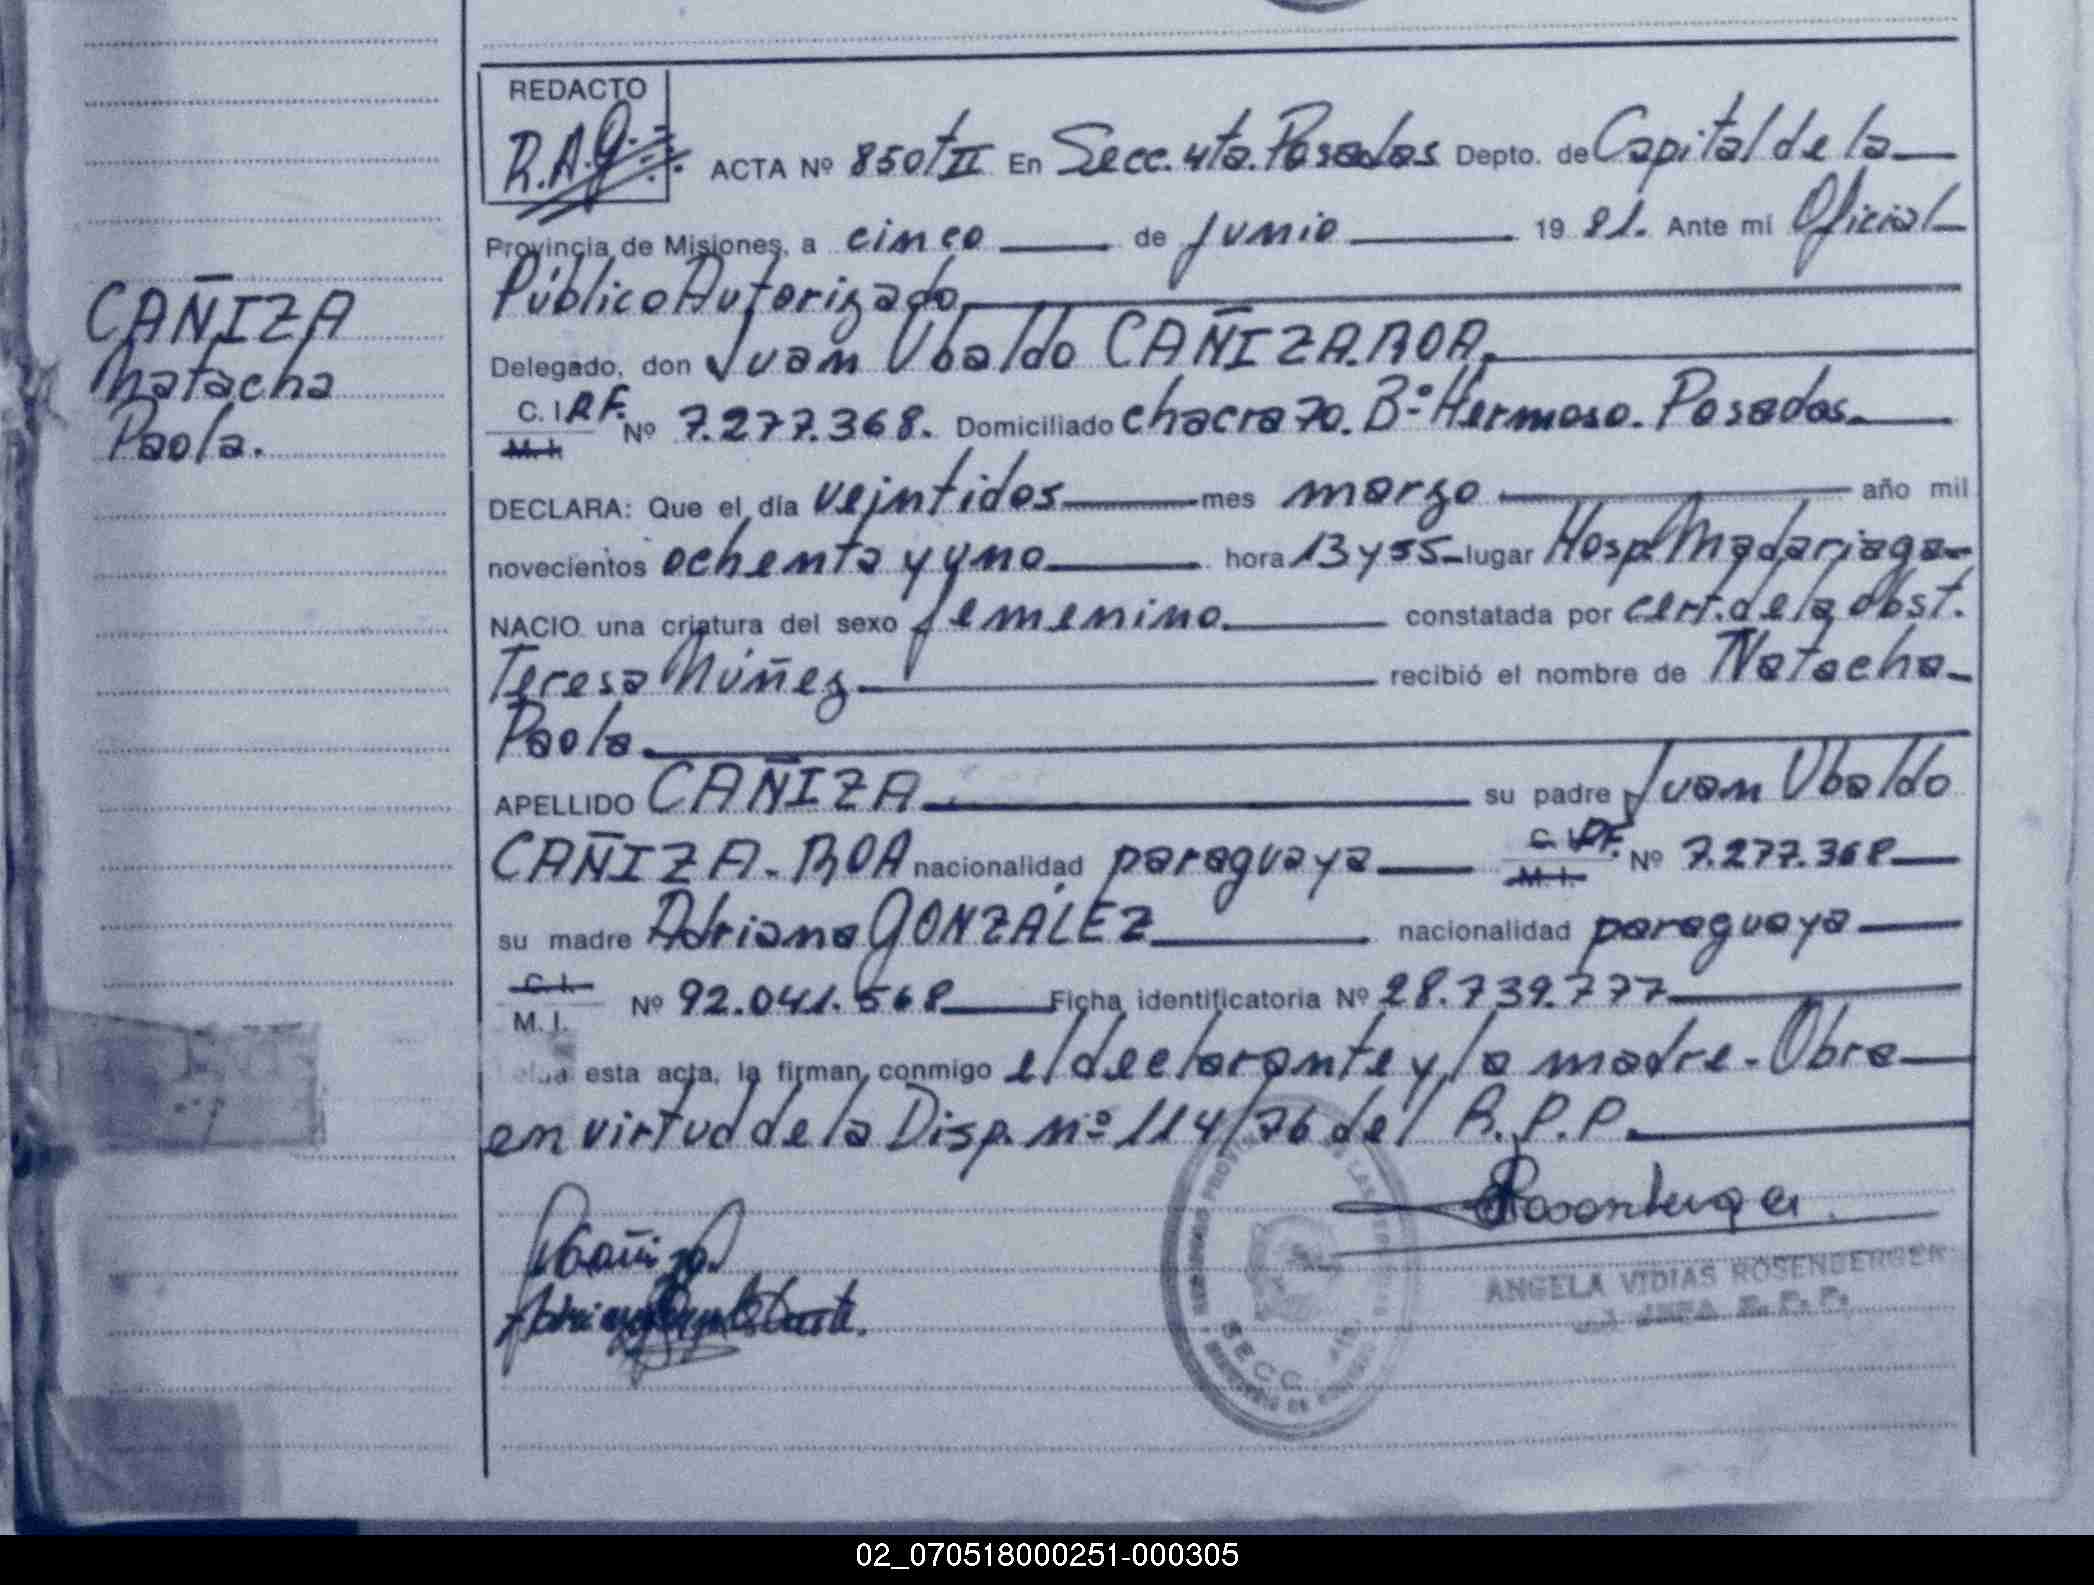 REDACTO
R.A.G.
ACTA Nº 850 T II En Secc. 4ta. Posadas Depto. de Capital de la
Provincia de Misiones, a cinco de junio 19 81. Ante mi Oficial
Público Autorizado
Delegado, don Juan Ubaldo CAÑIZA.ROA.
C. I. P.F. M. I. Nº 7.277.368. Domiciliado chacra 70. Bº Hermoso. Posadas.
DECLARA: Que el día veintidos mes marzo año mil
novecientos ochenta y uno hora 13 y 55 lugar Hosp. Madariaga
NACIO una criatura del sexo femenino. constatada por cert. de la obst.
Teresa Núñez recibió el nombre de Natacha
Paola.
APELLIDO CAÑIZA su padre Juan Ubaldo
CAÑIZA. ROA nacionalidad paraguaya C. I. P.F. M. I. Nº 7.277.368
su madre Adriana GONZÁLEZ nacionalidad paraguaya
C. I. M. I. Nº 92.041.568 Ficha identificatoria Nº 28.739.777
esta acta, la firman conmigo el declarante y la madre. Obra
en virtud de la Disp. nº 114/76 del R.P.P.
CAÑIZA
Natacha
Paola.
Rosenberger
ANGELA VIDIAS ROSENBERGER
JEFA R. P. P.
SECC.
02_070518000251-000305